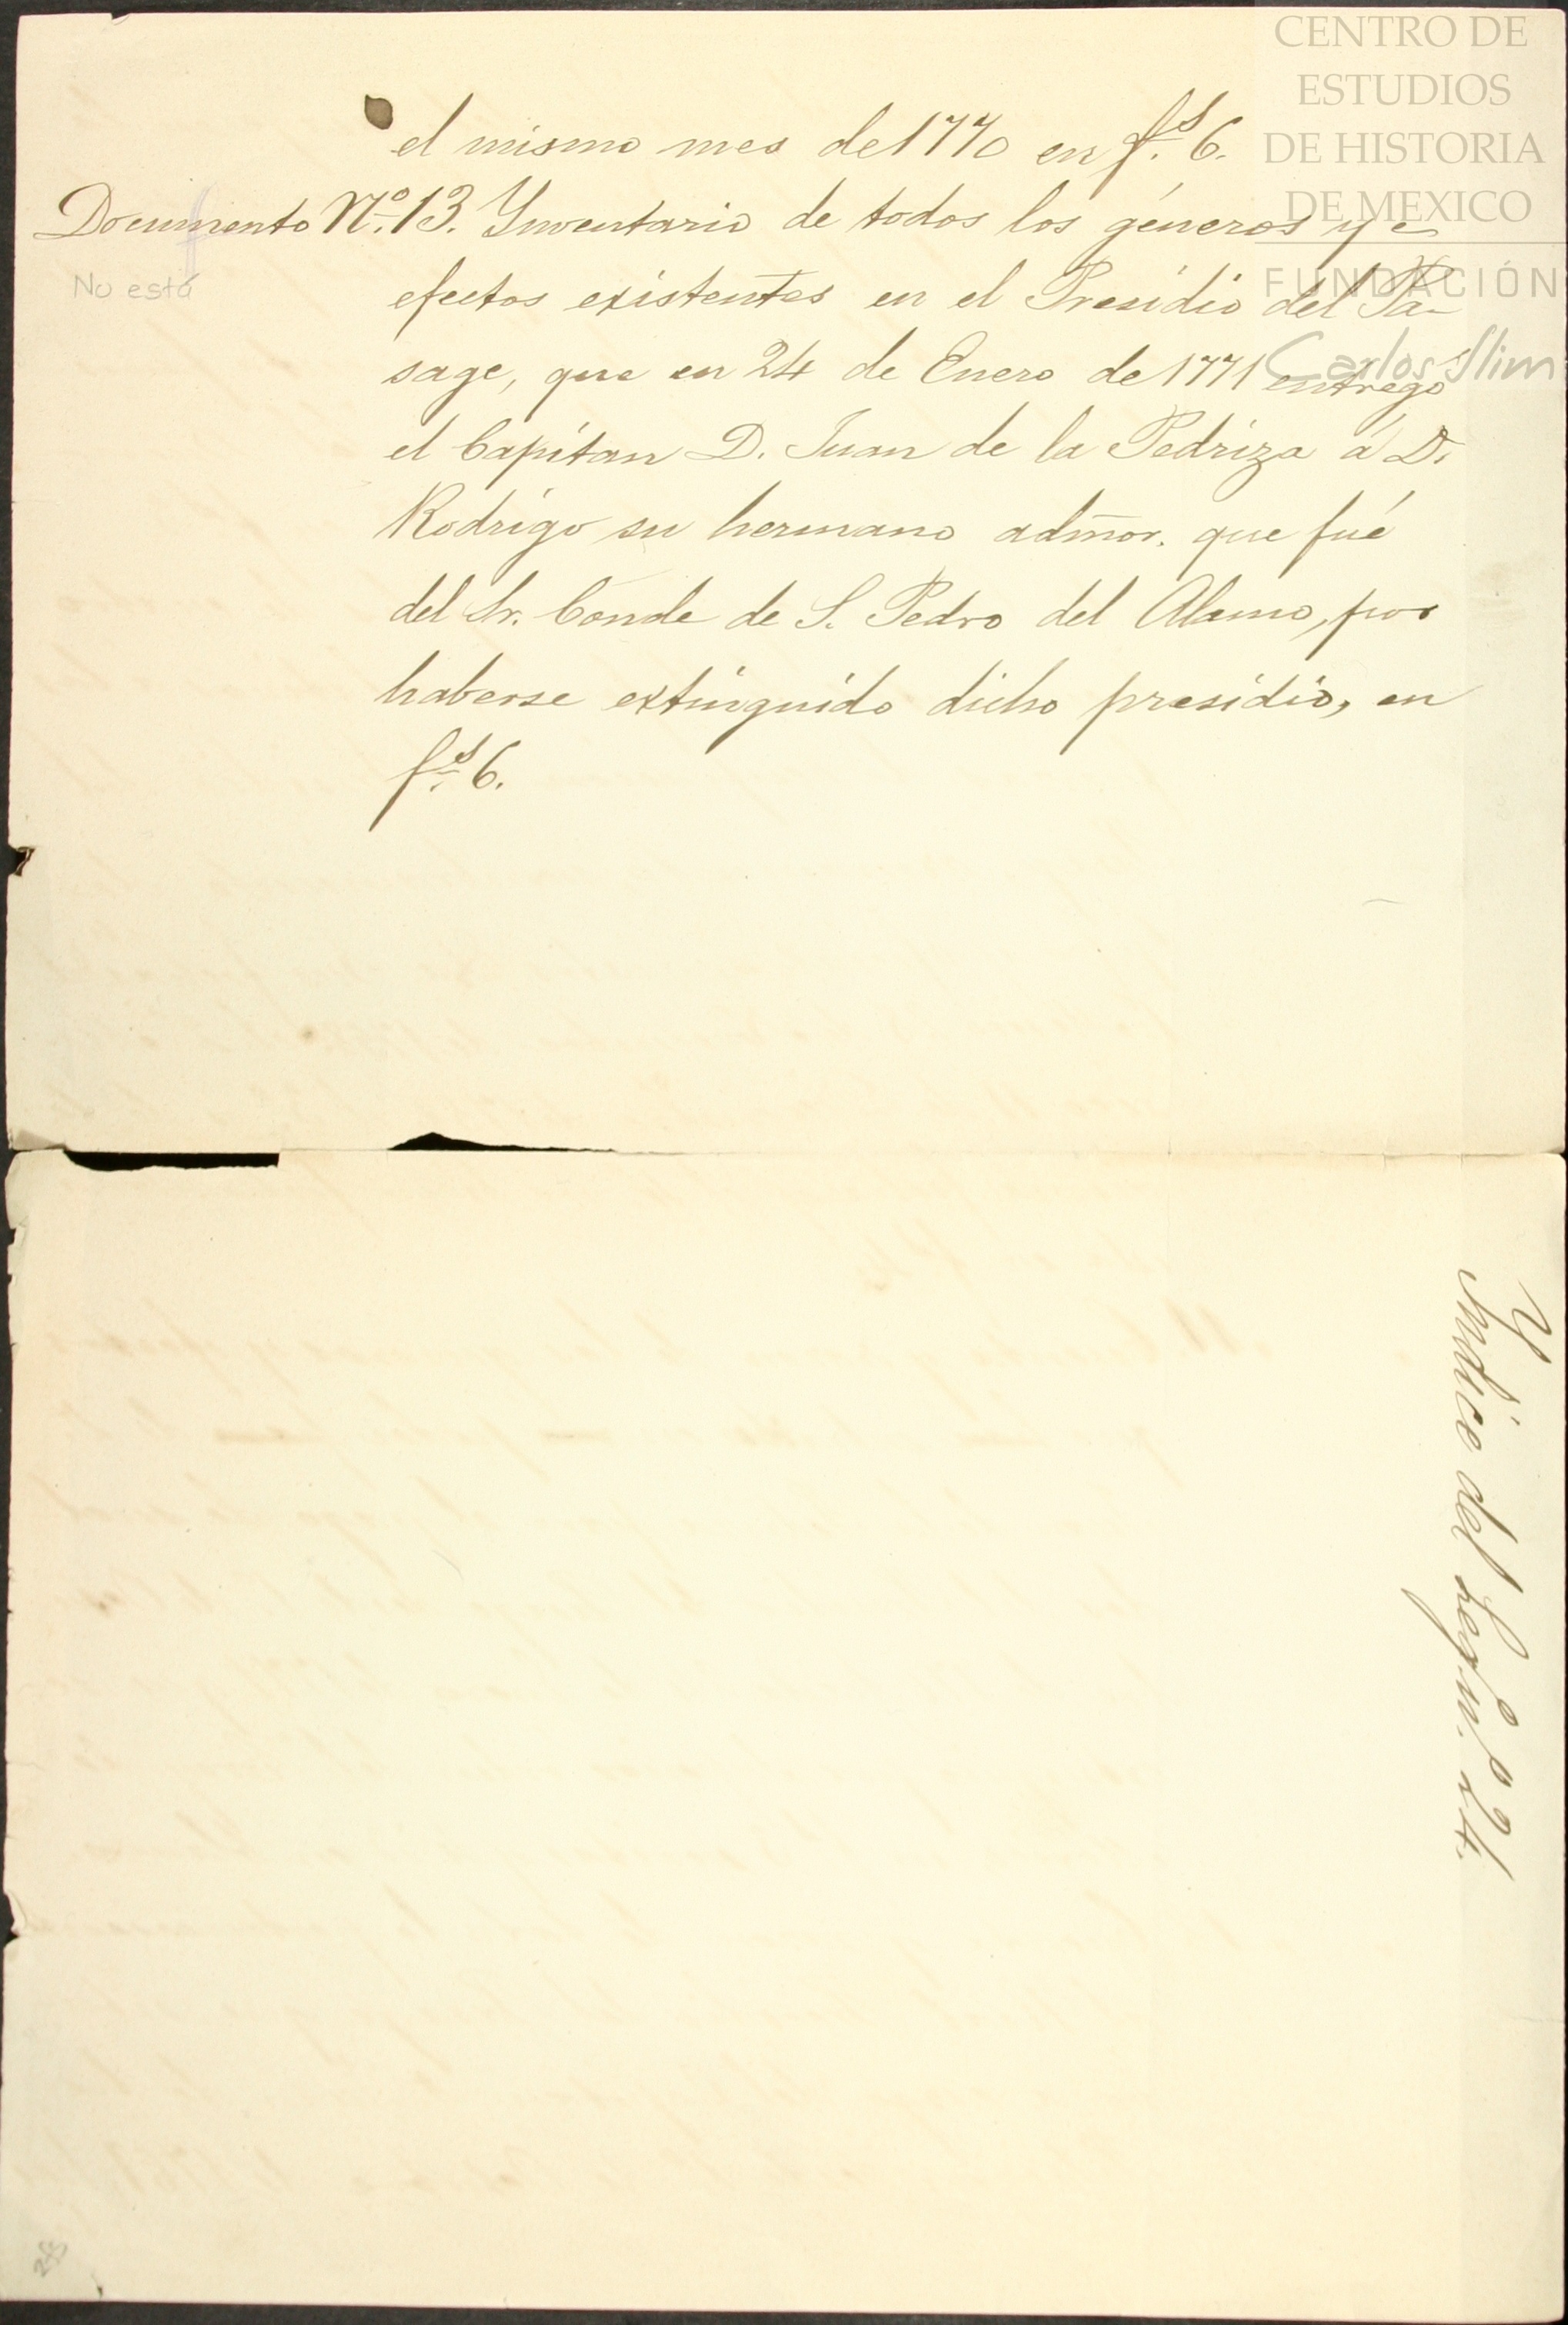 CENTRO DE
ESTUDIOS
DE HISTORIA
DE MEXICO
FUNDACIÓN
Carlos Slim
el mismo mes de 1770 en f.s 6.
Documento N.o 13. Ynventario de todos los géneros y
efectos existentes en el Presidio del Pa-
sage, que en 24 de Enero de 1771 entregó
el Capitan D. Juan de la Pedriza á D.
Rodrigo su hermano admor. que fué
del Sr. Conde de S. Pedro del Alamo, por
haberse extinguido dicho presidio, en
f.s 6.
No está
Yndice del Leg. n.o 24.